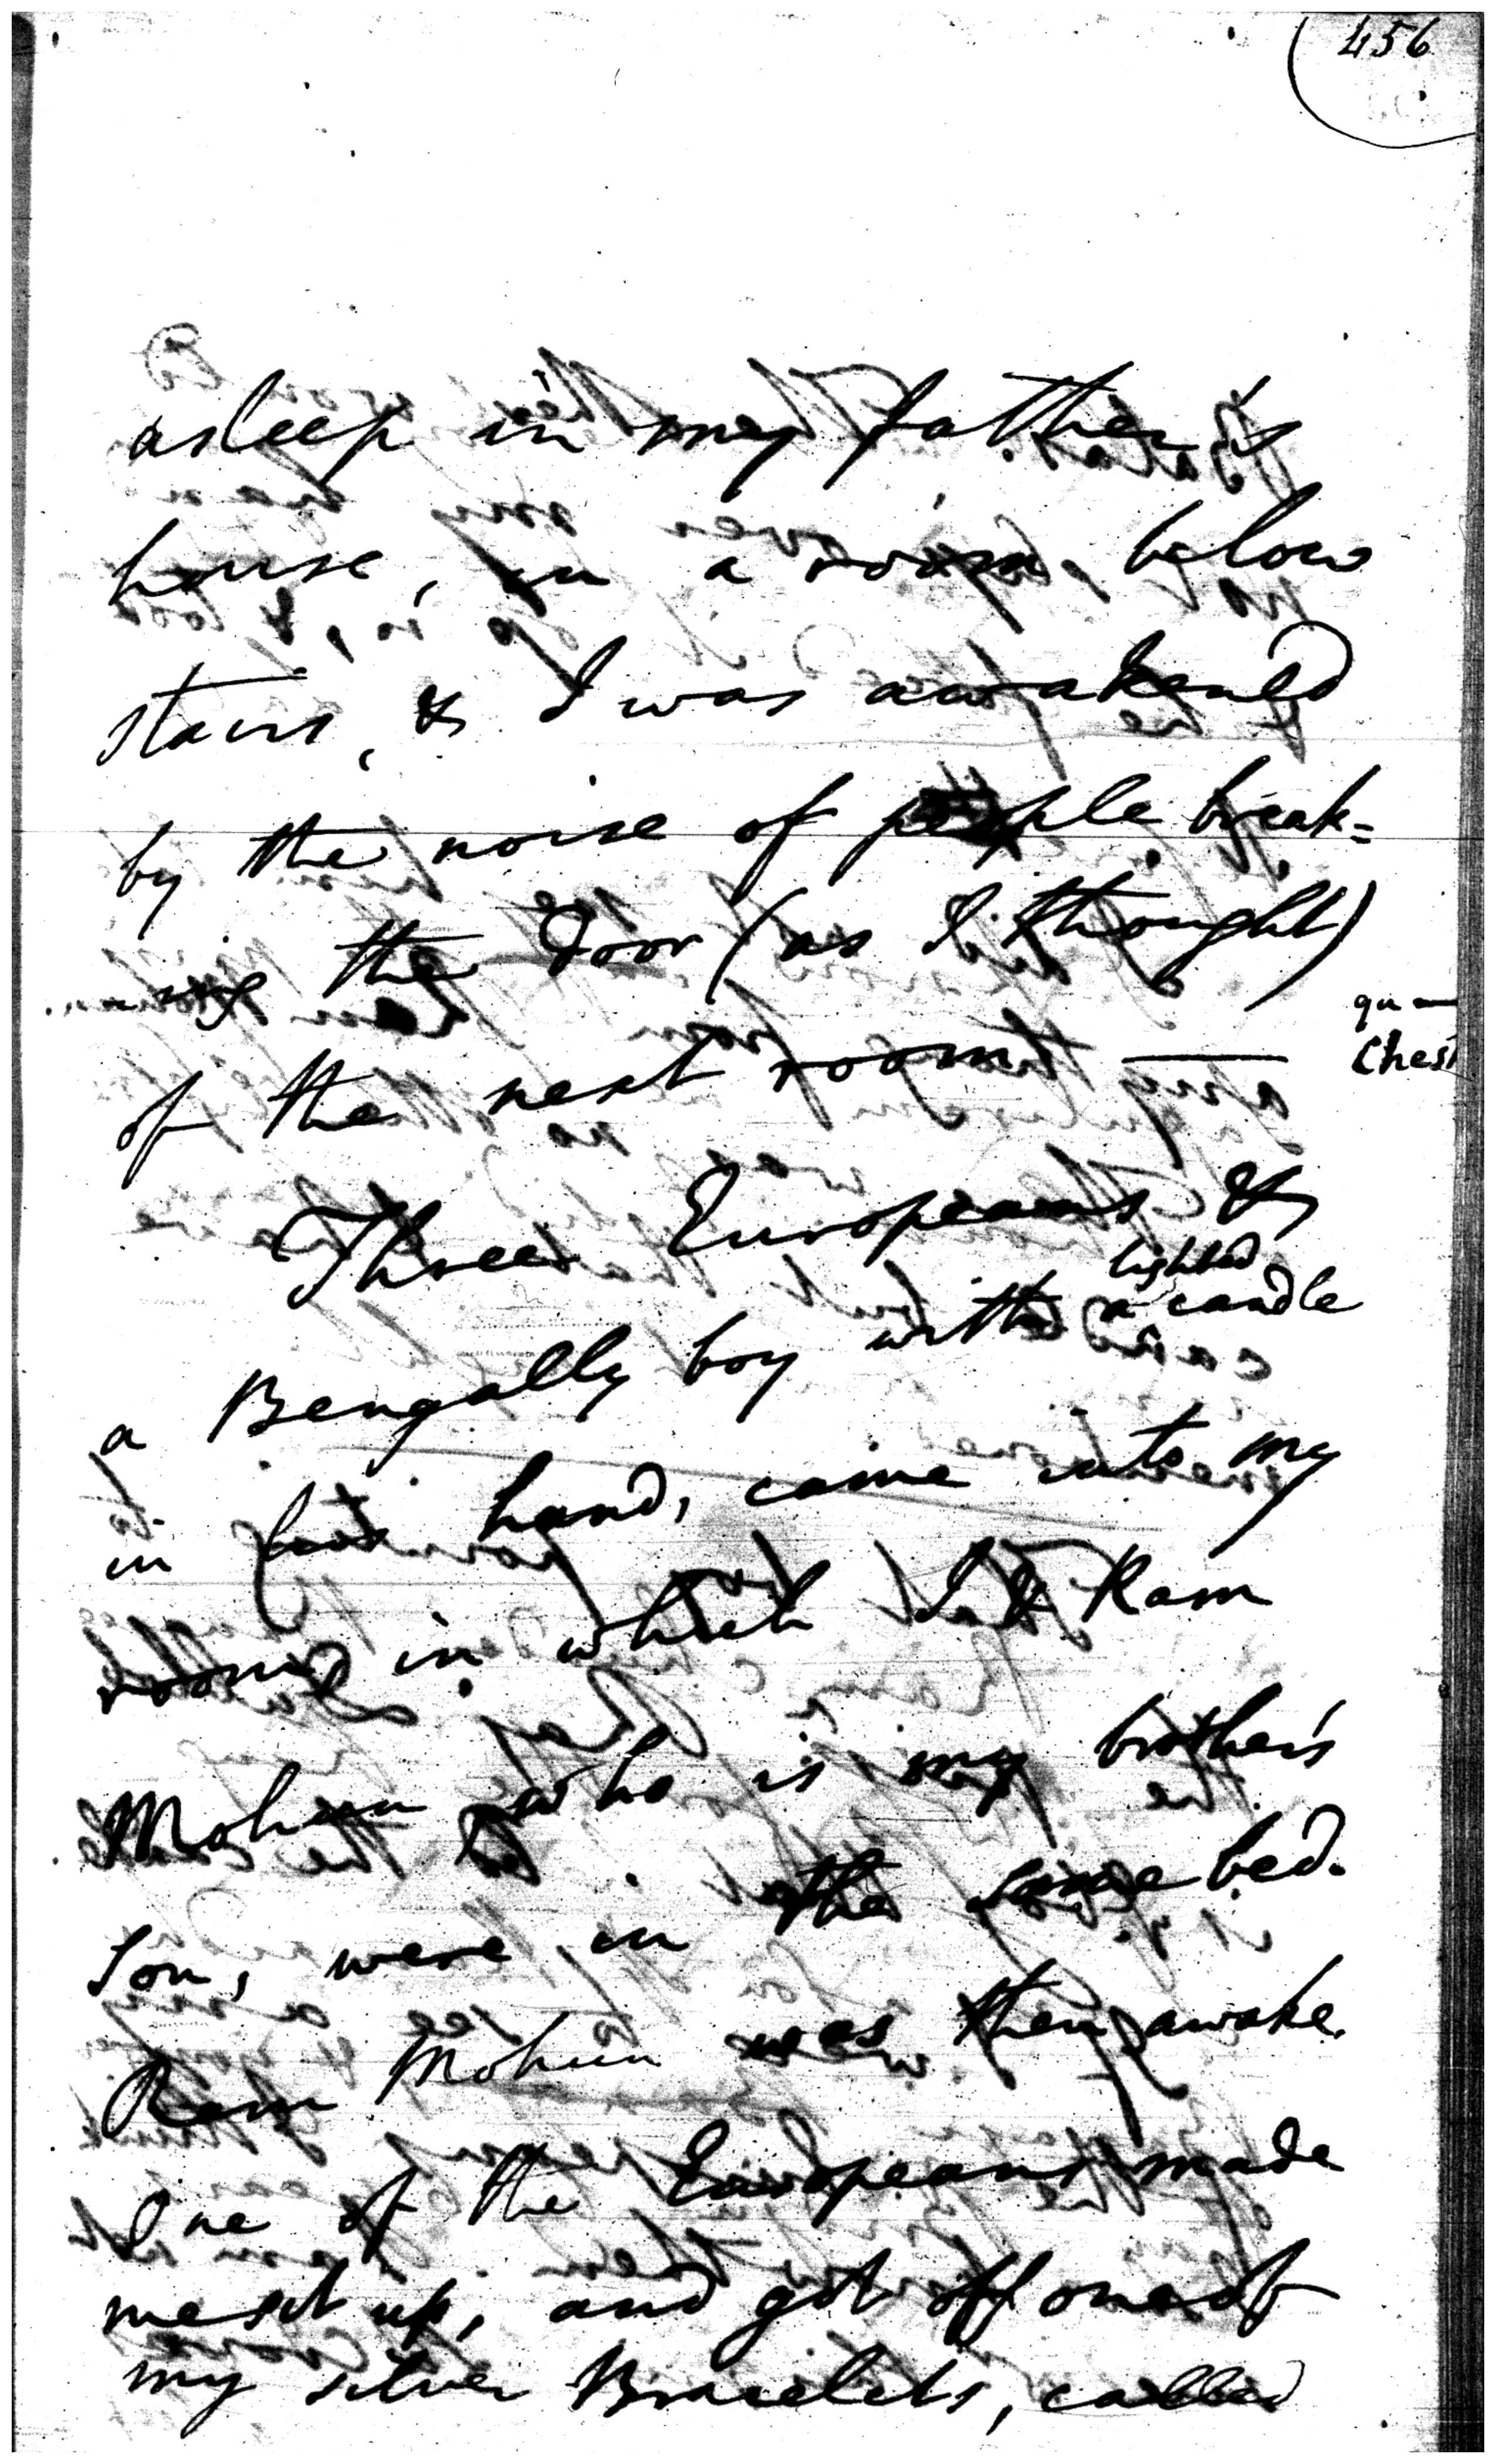 456
asleep in my father's
house, in a room below
stairs, & I was awakened
by the noise of people break=
ing the door (as I thought)
of the next room —
qu —
Chest
Three Europeans &
lighted
a Bengally boy with a candle
in his hand, came into my
room in which I & Ram
Mohun who is my brother's
son, were in the same bed.
Ram Mohun was then awake.
One of the Europeans made
me sit up, and got off one of
my silver Bracelets, called